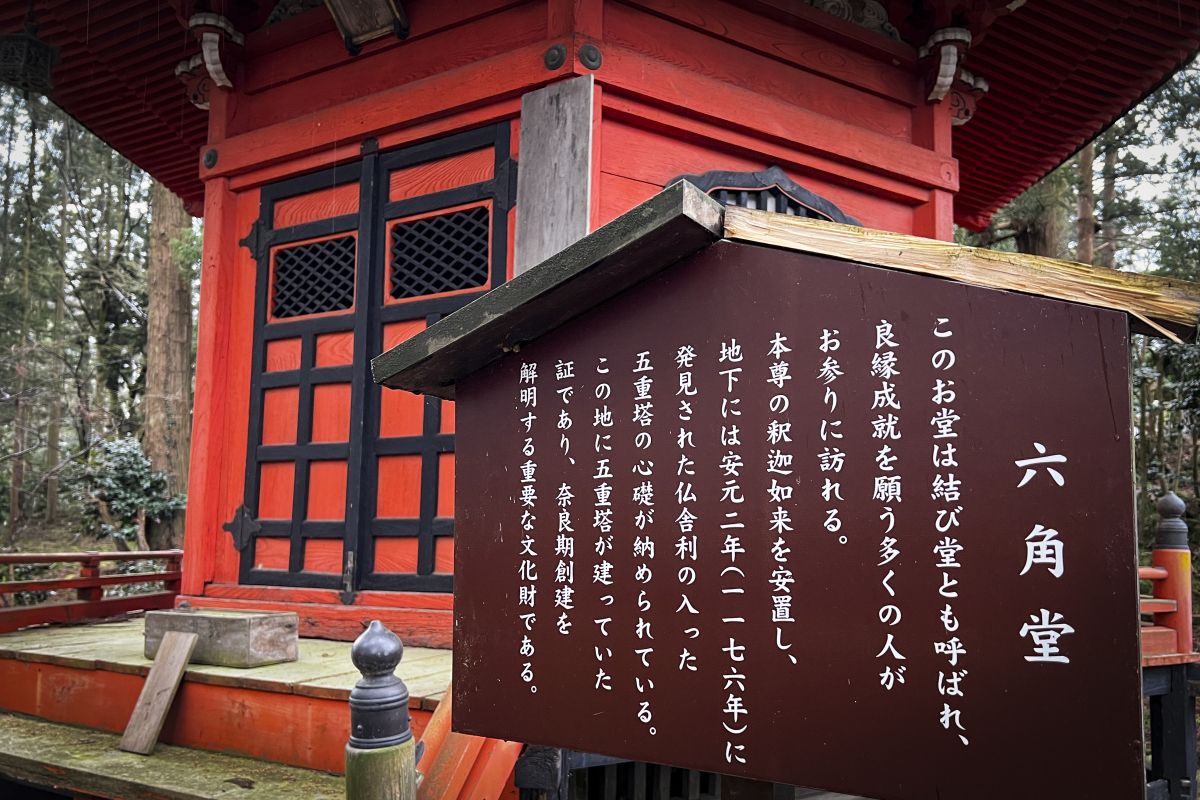 六角堂
このお堂は結び堂とも呼ばれ、
良縁成就を願う多くの人が
お参りに訪れる。
本尊の釈迦如来を安置し、
地下には安元二年(一一七六年)に
発見された仏舎利の入った
五重塔の心礎が納められている。
この地に五重塔が建っていた
証であり、奈良期創建を
解明する重要な文化財である。